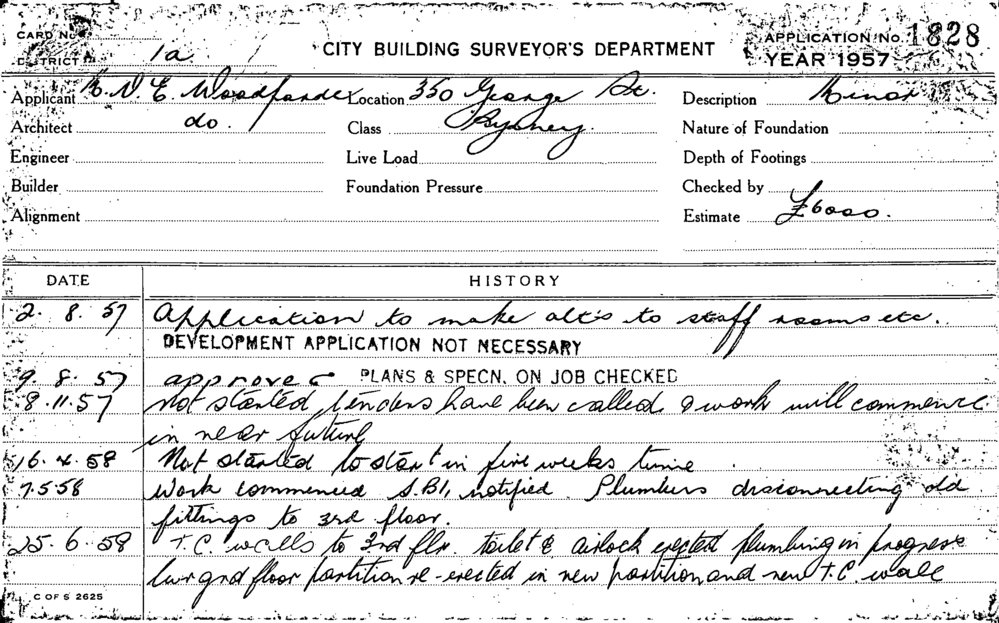 CARD No.
DISTRICT 1a
CITY BUILDING SURVEYOR'S DEPARTMENT
APPLICATION No. 1828
YEAR 1957
Applicant Location 350 George St. Description Minor
Architect do. Class Sydney. Nature of Foundation
Engineer Live Load Depth of Footings
Builder Foundation Pressure Checked by
Alignment Estimate £6000.
DATE HISTORY
2. 8. 57 Application to make alt's to staff rooms etc.
DEVELOPMENT APPLICATION NOT NECESSARY
9. 8. 57 approved PLANS & SPECN. ON JOB CHECKED
8.11.57 Not started tenders have been called & work will commence
in near future
16. 4. 58 Not started to start in five weeks time.
7.5.58 Work commenced S.B.I. notified. Plumbers disconnecting old
fittings to 3rd floor.
25. 6. 58 T.C. walls to 3rd flr. toilet & airlock erected plumbing in progress
lwr gnd floor partition re-erected in new partition and new T.C. wall
C OF S 2625